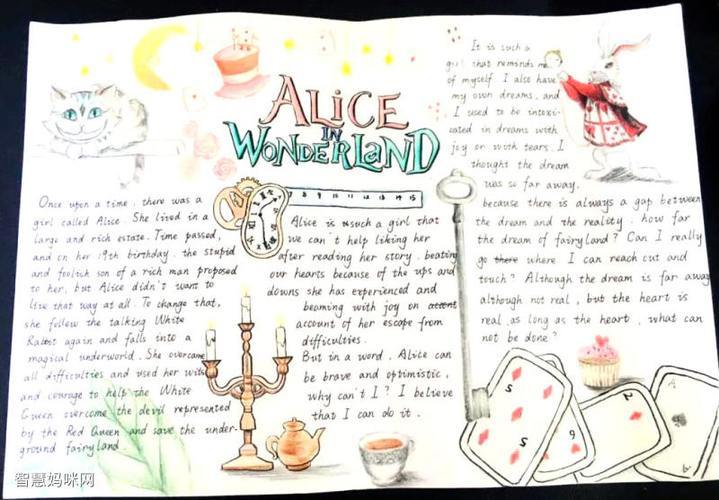 ALICE
IN
WONDERLAND
Once upon a time, there was a
girl called Alice. She lived in a
large and rich estate. Time passed,
and on her 19th birthday, the stupid
and foolish son of a rich man proposed
to her, but Alice didn't want to
live that way at all. To change that,
she follow the talking White
Rabbit again and falls into a
magical underworld. She overcame
all difficulties and used her wits
and courage to help the White
Queen overcome the devil represented
by the Red Queen and save the under-
ground fairyland
7 8 9 10 11 12 13 14 15
Alice is such a girl that
we can't help liking her
after reading her story. beating
our hearts because of the ups and
downs she has experienced and
beaming with joy on
account of her escape from
difficulties.
But in a word, Alice can
be brave and optimistic,
why can't I? I believe
that I can do it.
It is such a
girl that reminds me
of myself. I also have
my own dreams, and
I used to be intoxi-
cated in dreams with
joy or with tears. I
thought the dream
was so far away.
because there is always a gap between
the dream and the reality. how far
the dream of fairyland? Can I really
go there where I can reach out and
touch? Although the dream is far away
although not real, but the heart is
real. as long as the heart, what can
not be done?
5
5
6
2
智慧妈咪网